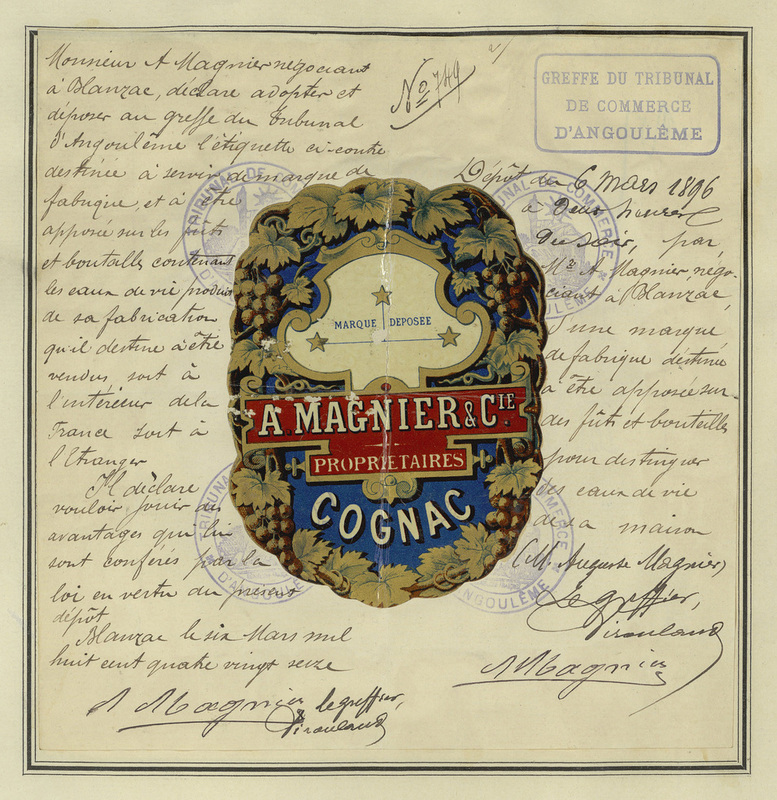 Monsieur A Magnier négociant
à Blanzac, déclare adopter et
déposer au greffe du tribunal
d'Angoulême l'étiquette ci-contre
destinée à servir de marque de
fabrique, et à être
apposée sur les fûts
et boutalles contenant
les eaux de vie produits
de sa fabrication
qu'il destine à être
vendus soit à
l'intérieur de la
France soit à
l'Etranger
Il déclare
vouloir jouir des
avantages qui lui
sont conférés par la
loi en vertu du présent
dépôt
Blanzac le six Mars mil
huit cent quatre vingt seize
A Magnier le greffier,
No 749
GREFFE DU TRIBUNAL
DE COMMERCE
D'ANGOULÊME
Dépôt du 6 Mars 1896
à Deux heures
Du soir, par
Mr A Magnier négo-
ciant à Blanzac,
d'une marque
de fabrique destinée
à être apposée sur
des fûts et bouteilles
pour distinguer
les eaux de vie
de sa maison
(M. Auguste Magnier)
Le greffier,
A Magnier
MARQUE DEPOSÉE
A. MAGNIER & CIE
PROPRIÉTAIRES
COGNAC
TRIBUNAL DE COMMERCE
D'ANGOULÊME